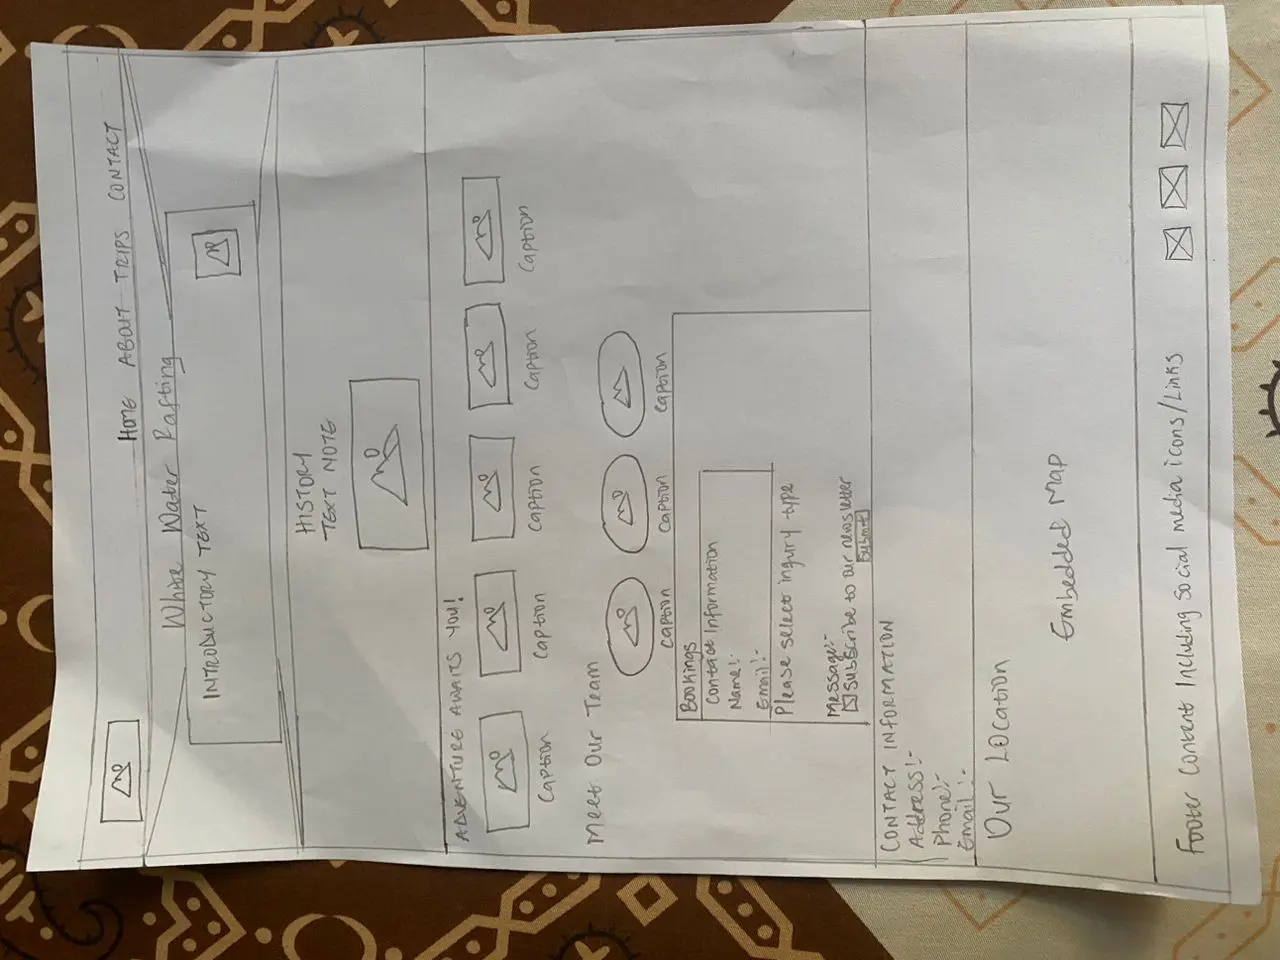 HOME ABOUT TRIPS CONTACT
White Water Rafting
INTRODUCTORY TEXT
HISTORY
TEXT NOTE
ADVENTURE AWAITS YOU!
Caption Caption Caption Caption Caption
Meet Our Team
Caption Caption Caption
Bookings
Contact Information
Name:-
Email:-
Please select inqury type
Message:-
Subscribe to our newsletter
Submit
CONTACT INFORMATION
Address:-
Phone:-
Email:-
Our Location
Embedded Map
Footer Content Including social media icons/Links